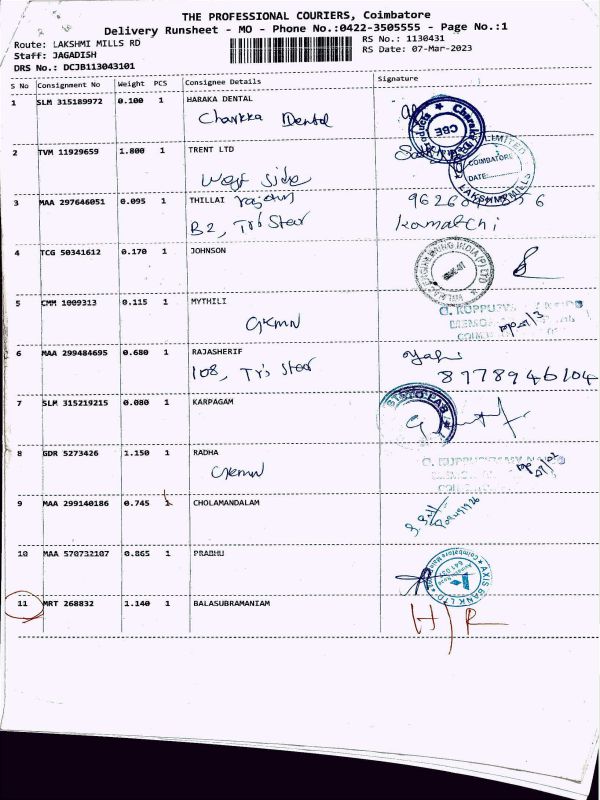 THE PROFESSIONAL COURIERS, Coimbatore
Delivery Runsheet - MO - Phone No.:0422-3505555 - Page No.:1
Route: LAKSHMI MILLS RD
RS No.: 1130431
Staff: JAGADISH
RS Date: 07-Mar-2023
DRS No.: DCJB113043101
S No Consignment No Weight PCS Consignee Details Signature
1 SLM 315189972 0.100 1 HARAKA DENTAL
Charkka Dental
CBE
2 TVM 11929659 1.800 1 TRENT LTD
West Side
LIMITED
COIMBATORE
DATE:
LAKSHMI MILLS
3 MAA 297646051 0.095 1 THILLAI rajathi
B2, Tris Star
Kamatchi
4 TCG 50341612 0.170 1 JOHNSON
5 CMM 1009313 0.115 1 MYTHILI
GKMN
6 MAA 299484695 0.680 1 RAJASHERIF
108, Tris Star
8778946104
7 SLM 315219215 0.080 1 KARPAGAM
8 GDR 5273426 1.150 1 RADHA
GKMN
9 MAA 299140186 0.745 1 CHOLAMANDALAM
10 MAA 570732107 0.865 1 PRABHU
AXIS BANK LTD
11 MRT 268832 1.140 1 BALASUBRAMANIAM
H/R